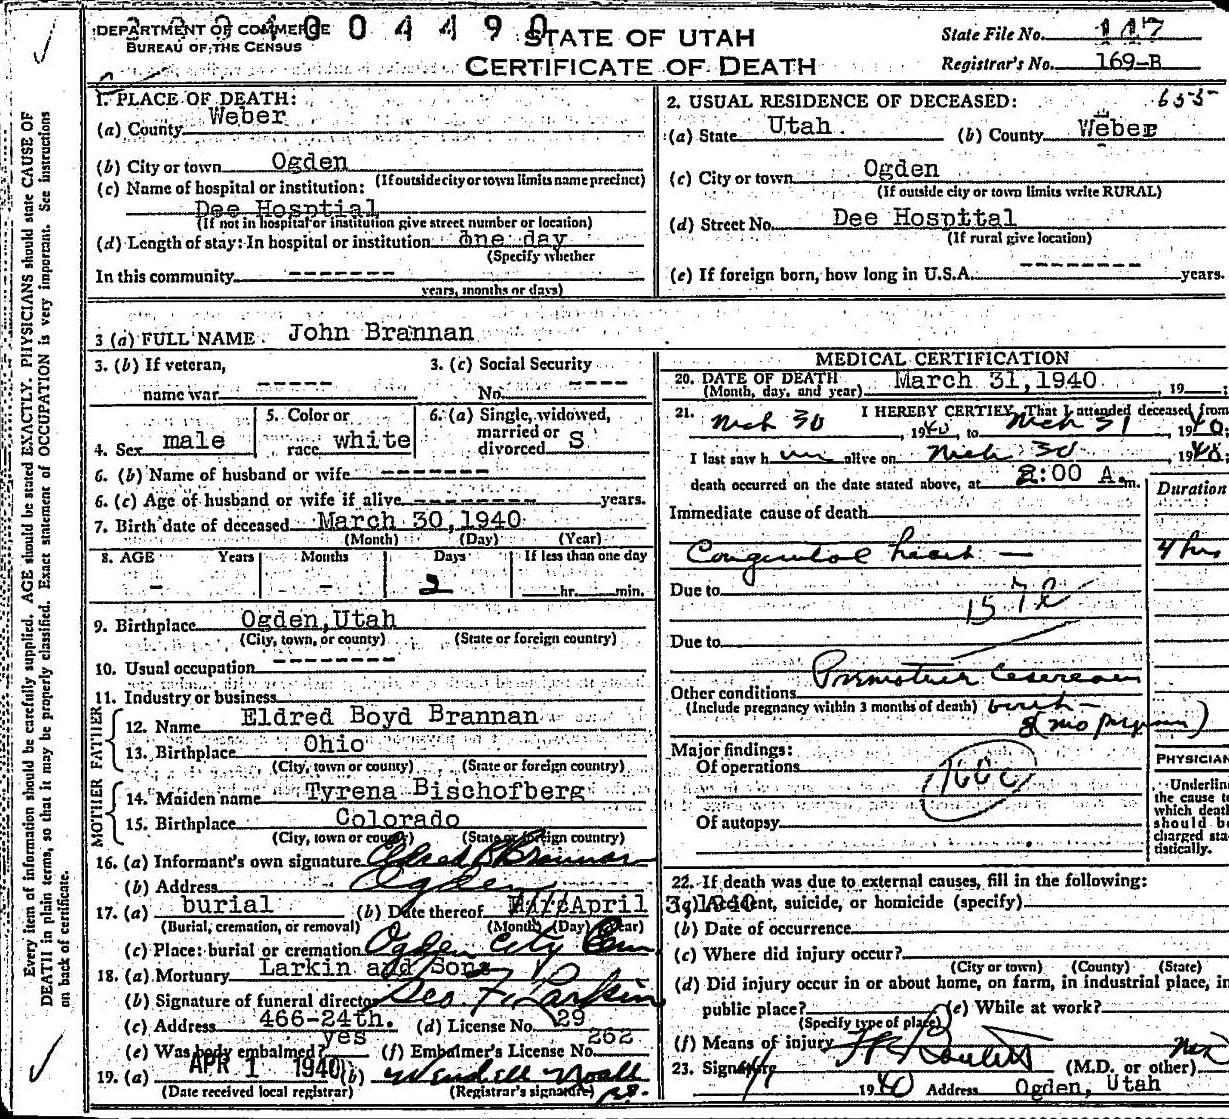 DEPARTMENT OF COMMERCE
BUREAU OF THE CENSUS
0 0 4 4 9 0
STATE OF UTAH
CERTIFICATE OF DEATH
State File No. 117
Registrar's No. 169-B
Every item of information should be carefully supplied. AGE should be stated EXACTLY. PHYSICIANS should state CAUSE OF
DEATH in plain terms, so that it may be properly classified. Exact statement of OCCUPATION is very important. See instructions
on back of certificate.
1. PLACE OF DEATH:
(a) County Weber
(b) City or town Ogden
(If outside city or town limits name precinct)
(c) Name of hospital or institution:
Dee Hosptial
(If not in hospital or institution give street number or location)
(d) Length of stay: In hospital or institution one day
(Specify whether
In this community -------
years, months or days)
2. USUAL RESIDENCE OF DECEASED: 655
(a) State Utah (b) County Weber
(c) City or town Ogden
(If outside city or town limits write RURAL)
(d) Street No. Dee Hospttal
(If rural give location)
(e) If foreign born, how long in U.S.A. -------- years.
3 (a) FULL NAME John Brannan
3. (b) If veteran,
name war -----
3. (c) Social Security
No. ----
4. Sex male
5. Color or
race white
6. (a) Single, widowed,
married or
divorced S
6. (b) Name of husband or wife -------
6. (c) Age of husband or wife if alive -------- years.
7. Birth date of deceased March 30, 1940
(Month) (Day) (Year)
8. AGE Years Months Days If less than one day
- - 2 hr. min.
9. Birthplace Ogden, Utah
(City, town, or county) (State or foreign country)
10. Usual occupation --------
11. Industry or business
FATHER
12. Name Eldred Boyd Brannan
13. Birthplace Ohio
(City, town or county) (State or foreign country)
MOTHER
14. Maiden name Tyrena Bischofberg
15. Birthplace Colorado
(City, town or county) (State or foreign country)
16. (a) Informant's own signature Eldred B Brannan
(b) Address Ogden
17. (a) burial (b) Date thereof April 3, 1940
(Burial, cremation, or removal) (Month) (Day) (Year)
(c) Place: burial or cremation Ogden City Cem
18. (a) Mortuary Larkin and Sons
(b) Signature of funeral director Geo F. Larkin
(c) Address 466-24th. (d) License No. 29
(e) Was body embalmed? yes (f) Embalmer's License No. 262
19. (a) APR 1 1940 (b) Wendell Noall
(Date received local registrar) (Registrar's signature)
MEDICAL CERTIFICATION
20. DATE OF DEATH March 31, 1940
(Month, day, and year) , 19
21. I HEREBY CERTIFY, That I attended deceased from
Mch 30, 1940, to Mch 31, 1940;
I last saw h im alive on Mch 30, 1940;
death occurred on the date stated above, at 2:00 A.m.
Duration
Immediate cause of death
Congenital heart — 4 hrs
Due to 157e
Due to
Premature Cesarean
Other conditions
(Include pregnancy within 3 months of death) birth
Major findings:
Of operations
Of autopsy
PHYSICIAN
Underline
the cause to
which death
should be
charged sta-
tistically.
22. If death was due to external causes, fill in the following:
(a) Accident, suicide, or homicide (specify)
(b) Date of occurrence
(c) Where did injury occur?
(City or town) (County) (State)
(d) Did injury occur in or about home, on farm, in industrial place, in
public place? (e) While at work?
(Specify type of place)
(f) Means of injury
23. Signature (M.D. or other)
1940 Address Ogden, Utah